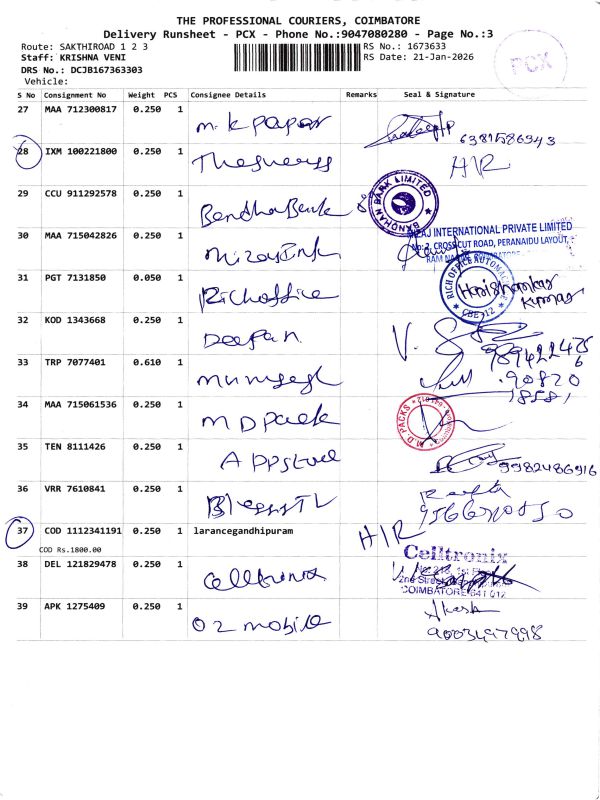 THE PROFESSIONAL COURIERS, COIMBATORE
Delivery Runsheet - PCX - Phone No.:9047080280 - Page No.:3
Route: SAKTHIROAD 1 2 3
RS No.: 1673633
Staff: KRISHNA VENI
RS Date: 21-Jan-2026
DRS No.: DCJB167363303
Vehicle:
PCX
S No Consignment No Weight PCS Consignee Details Remarks Seal & Signature
27 MAA 712300817 0.250 1 m.k papar
6381586943
28 IXM 100221800 0.250 1 HIR
29 CCU 911292578 0.250 1 Bandha Bank
BANDHAN BANK LIMITED
30 MAA 715042826 0.250 1
INTERNATIONAL PRIVATE LIMITED
No: 2, CROSSCUT ROAD, PERANAIDU LAYOUT,
31 PGT 7131850 0.050 1 Richoffice
RICH OFFICE AUTOMATION
CBE-12
Harishankar
Kumar
32 KOD 1343668 0.250 1 Deepan
33 TRP 7077401 0.610 1
90820
18581
34 MAA 715061536 0.250 1 M D pack
M.D. PACKS
35 TEN 8111426 0.250 1
9982486916
36 VRR 7610841 0.250 1
37 COD 1112341191 0.250 1 larancegandhipuram HIR
COD Rs.1800.00
38 DEL 121829478 0.250 1 Celltronix
Celltronix
COIMBATORE 641 012
39 APK 1275409 0.250 1 O2 mobile
Akash
9003497998